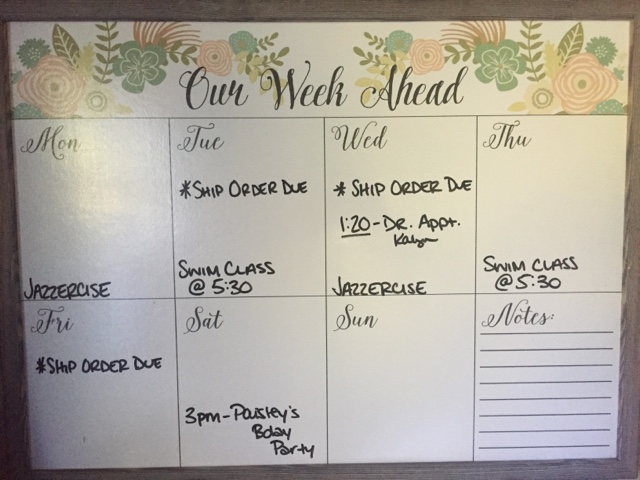 Our Week Ahead
Mon
JAZZERCISE
Tue
*SHIP ORDER DUE
SWIM CLASS
@ 5:30
Wed
* SHIP ORDER DUE
1:20-DR. APPT.
JAZZERCISE
Thu
SWIM CLASS
@ 5:30
Fri
*SHIP ORDER DUE
Sat
3pm-PAISLEY'S
BDAY
PARTY
Sun
Notes: